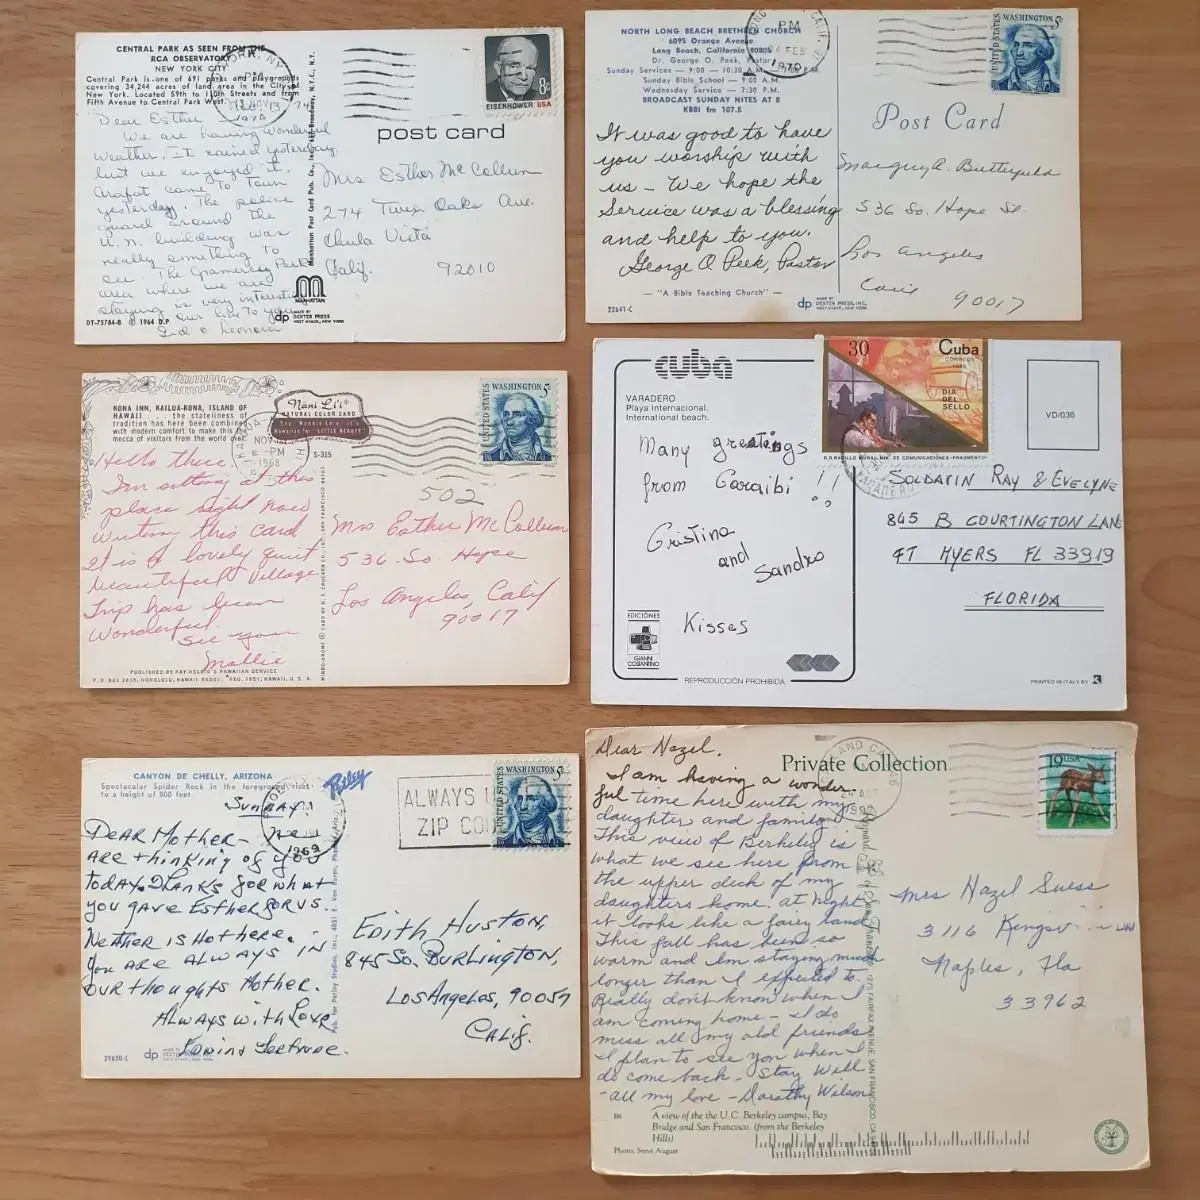 CENTRAL PARK AS SEEN FROM THE
RCA OBSERVATORY
NEW YORK CITY
Central Park is one of 691 parks and playgrounds
covering 34,244 acres of land area in the City of
New York. Located 59th to 110th Streets and from
Fifth Avenue to Central Park West.
Dear Esther
We are having wonderful
weather. It rained yesterday,
but we enjoyed it.
Arafat came to town
yesterday. The police
guard around the
U.N. building was
really something to
see. The Gramercy Park
area where we are
staying is very interesting
Our love to you
Sid & Leonora
DT-75784-B © 1964 D.P.
Manhattan Post Card Pub. Co., Inc., Broadway, N.Y.C., N.Y.
MANHATTAN
dp MADE BY
DEXTER PRESS
WEST NYACK, NEW YORK
1974
8c
EISENHOWER USA
post card
Mrs Esther McCollum
274 Twin Oaks Ave.
Chula Vista
Calif. 92010
NORTH LONG BEACH BRETHREN CHURCH
6095 Orange Avenue
Long Beach, California 90805
Dr. George O. Peek, Pastor
Sunday Services — 9:00 — 10:30 A.M. 7:00 P.M.
Sunday Bible School — 9:00 A.M.
Wednesday Service — 7:30 P.M.
BROADCAST SUNDAY NITES AT 8
KBBI fm 107.5
It was good to have
you worship with
us — We hope the
Service was a blessing
and help to you.
George O Peek, Pastor
— "A Bible Teaching Church" —
22641-C
dp MADE BY
DEXTER PRESS, INC.
WEST NYACK, NEW YORK
PM
FEB
1970
UNITED STATES
WASHINGTON 5c
Post Card
Butterfield
536 So. Hope St.
Los Angeles
90017
KONA INN, KAILUA-KONA, ISLAND OF
HAWAII . . . the stateliness of
tradition has here been combined
with modern comfort to make this the
mecca of visitors from the world over.
Nani Li'i
NATURAL COLOR CARD
S-315
NOV
PM
1968
Hello there
I'm sitting at this
place right now
writing this card
It is a lovely quiet
beautiful village
Trip has been
wonderful.
See you
Mollie
PUBLISHED BY RAY HELBIG'S HAWAIIAN SERVICE
P. O. BOX 2835, HONOLULU, HAWAII 96803. REG. 1951, HAWAII, U. S. A.
UNITED STATES
WASHINGTON 5c
502
Mrs Esther McCollum
536 So. Hope
Los Angeles, Calif
90017
cuba
VARADERO
Playa Internacional.
International beach.
Many greatings
from Caraibi!!
Cristina
and
Sandro
Kisses
EDICIONES
GIANNI
COSTANTINO
REPRODUCCIÓN PROHIBIDA
30
Cuba
CORREOS
DIA
DEL
SELLO
VARADERO
VD/036
SOLDAVIN RAY & EVELYNE
845 B COURTINGTON LANE
FT MYERS FL 33919
FLORIDA
PRINTED IN ITALY BY K
CANYON DE CHELLY, ARIZONA
Spectacular Spider Rock in the foreground rises
to a height of 800 feet.
Petley
Sunday.
DEAR MOTHER— We
ARE thinking of you
today. Thanks for what
you gave Esther for us.
Weather is Hot here.
You are always in
our thoughts Mother.
Always with Love,
Gertrude.
29820-C
dp
Pub. by Petley Studios, Inc., 4051 E. Van Buren, Phoenix, Ariz.
1969
ALWAYS USE
ZIP CODE
UNITED STATES
WASHINGTON 5c
Edith Huston,
845 So. Burlington,
Los Angeles, 90057
Calif.
Dear Hazel,
I am having a wonder-
ful time here with my
daughter and family
This view of Berkeley is
what we see here from
the upper deck of my
daughters home. At night
it looks like a fairy land
This fall has been so
warm and I'm staying much
longer than I expected to.
Really don't know when I
am coming home — I do
miss all my old friends
I plan to see you when I
do come back — Stay Well
— all my love — Dorathy Wilson
Private Collection
OAKLAND CA 946
OCT
19USA
Mrs Hazel Suess
3116
Naples, Fla
33962
1275 FAIRFAX AVENUE, SAN FRANCISCO, CA
B6 A view of the the U.C. Berkeley campus, Bay
Bridge and San Francisco. (from the Berkeley
Hills)
Photo: Steve August